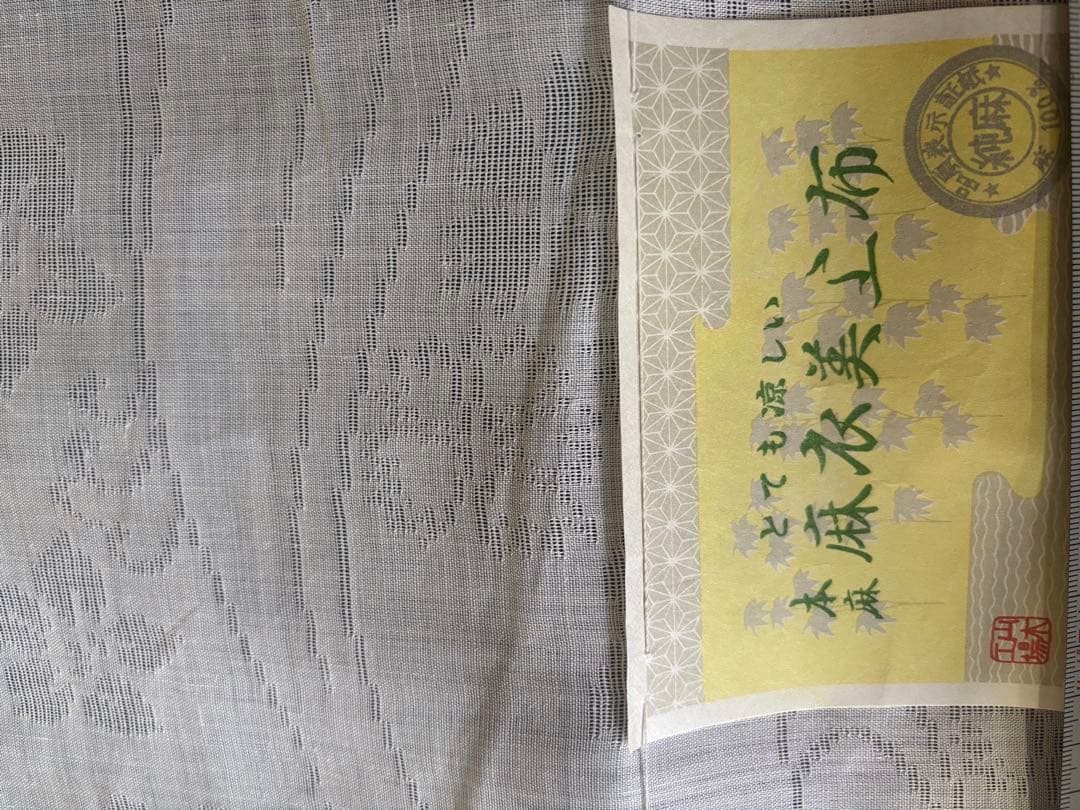 とても涼しい
本麻
麻衣美上布
品質表示証紙
純麻
麻 100%